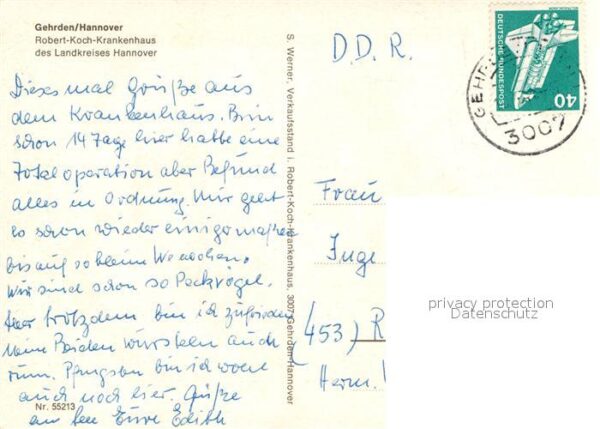 Gehrden/Hannover
Robert-Koch-Krankenhaus
des Landkreises Hannover
Dieses mal Grüße aus
dem Krankenhaus. Bin
schon 14 Tage hier hatte eine
Totaloperation aber Befund
alles in Ordnung. Mir geht
es schon wieder einigermaßen
bis auf so kleine Wehwehchen.
Wir sind schon so Pechvögel.
Aber trotzdem bin ich zufrieden
Meine Beiden wursteln auch
rum. Pfingsten bin ich wohl
auch noch hier. Grüße
an alle Eure Edith
Nr. 55213
S. Werner, Verkaufsstand i. Robert-Koch-Krankenhaus, 3007 Gehrden/Hannover
D.D.R.
DEUTSCHE BUNDESPOST
40
GEHR
3007
Frau
Inge
(453) R
Herm.
privacy protection
Datenschutz